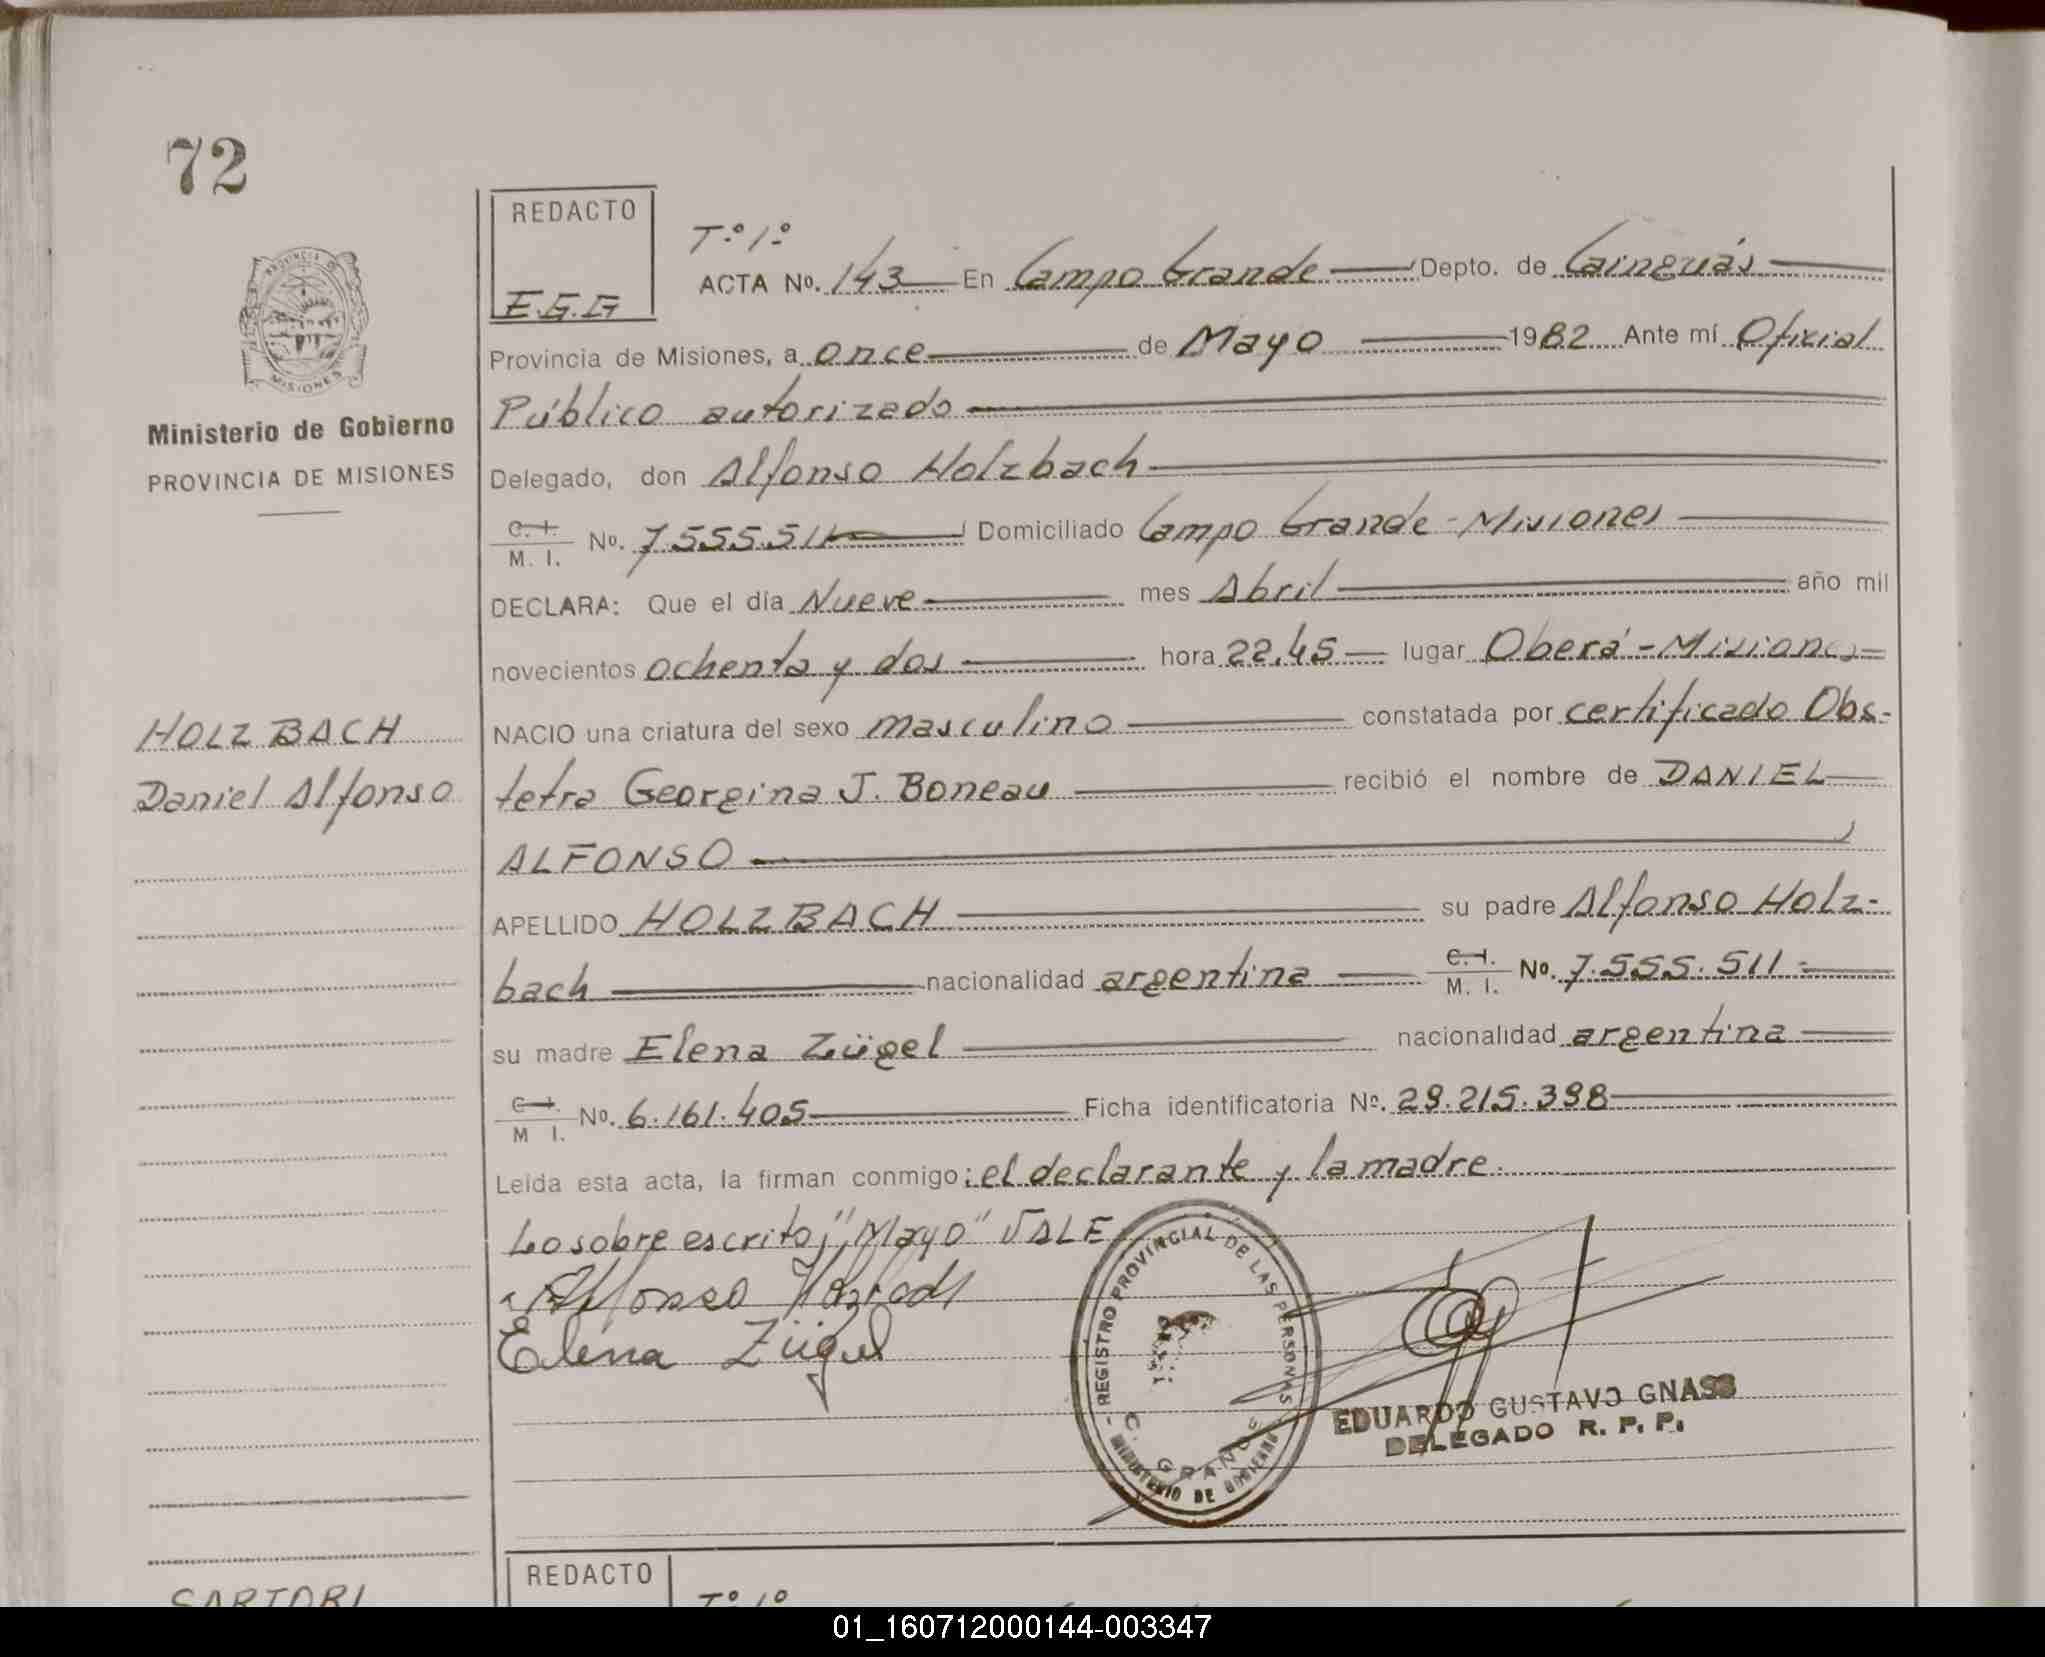 72
REDACTO
E.G.G
PROVINCIA DE
MISIONES
Ministerio de Gobierno
PROVINCIA DE MISIONES
HOLZBACH
Daniel Alfonso
Tº 1º
ACTA No. 143 En Campo Grande Depto. de Cainguás
Provincia de Misiones, a once de Mayo 1982 Ante mí Oficial
Público autorizado
Delegado, don Alfonso Holzbach
C. I. M. I. No. 7.555.511 Domiciliado Campo Grande - Misiones
DECLARA: Que el día Nueve mes Abril año mil
novecientos ochenta y dos hora 22.45 lugar Oberá - Misiones
NACIO una criatura del sexo masculino constatada por certificado Obs-
tetra Georgina J. Boneau recibió el nombre de DANIEL
ALFONSO
APELLIDO HOLZBACH su padre Alfonso Holz-
bach nacionalidad argentina C. I. M. I. No. 7.555.511
su madre Elena Zügel nacionalidad argentina
C. I. M. I. No. 6.161.405 Ficha identificatoria Nº. 29.215.398
Leída esta acta, la firman conmigo: el declarante y la madre.
Lo sobre escrito, "Mayo" VALE
Alfonso Holzbach
Elena Zügel
REGISTRO PROVINCIAL DE LAS PERSONAS
C. GRANDE
MINISTERIO DE GOBIERNO
EDUARDO GUSTAVO GNASS
DELEGADO R. P. P.
REDACTO
Tº 1º
SARTORI
01_160712000144-003347